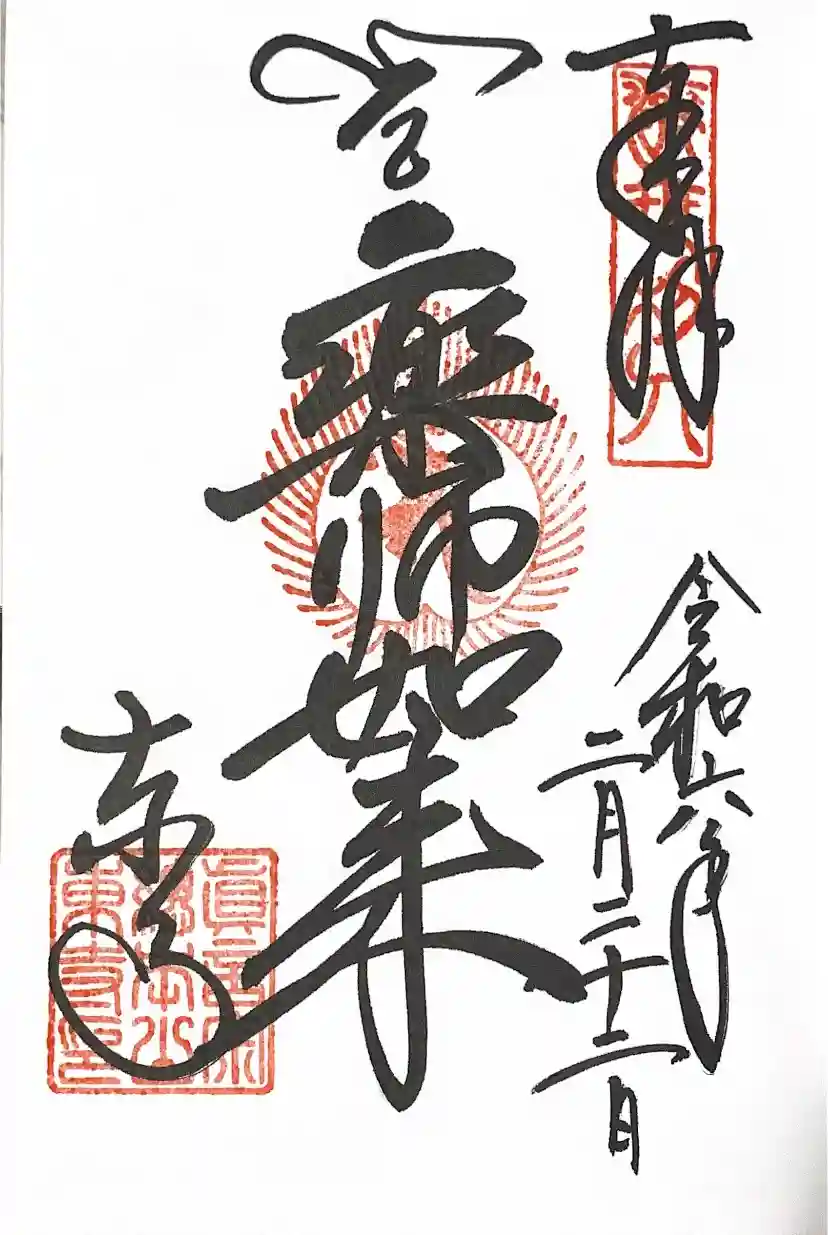 奉拝
令和六年
二月二十二日
薬師如来
東寺
眞言宗
總本山
東寺印